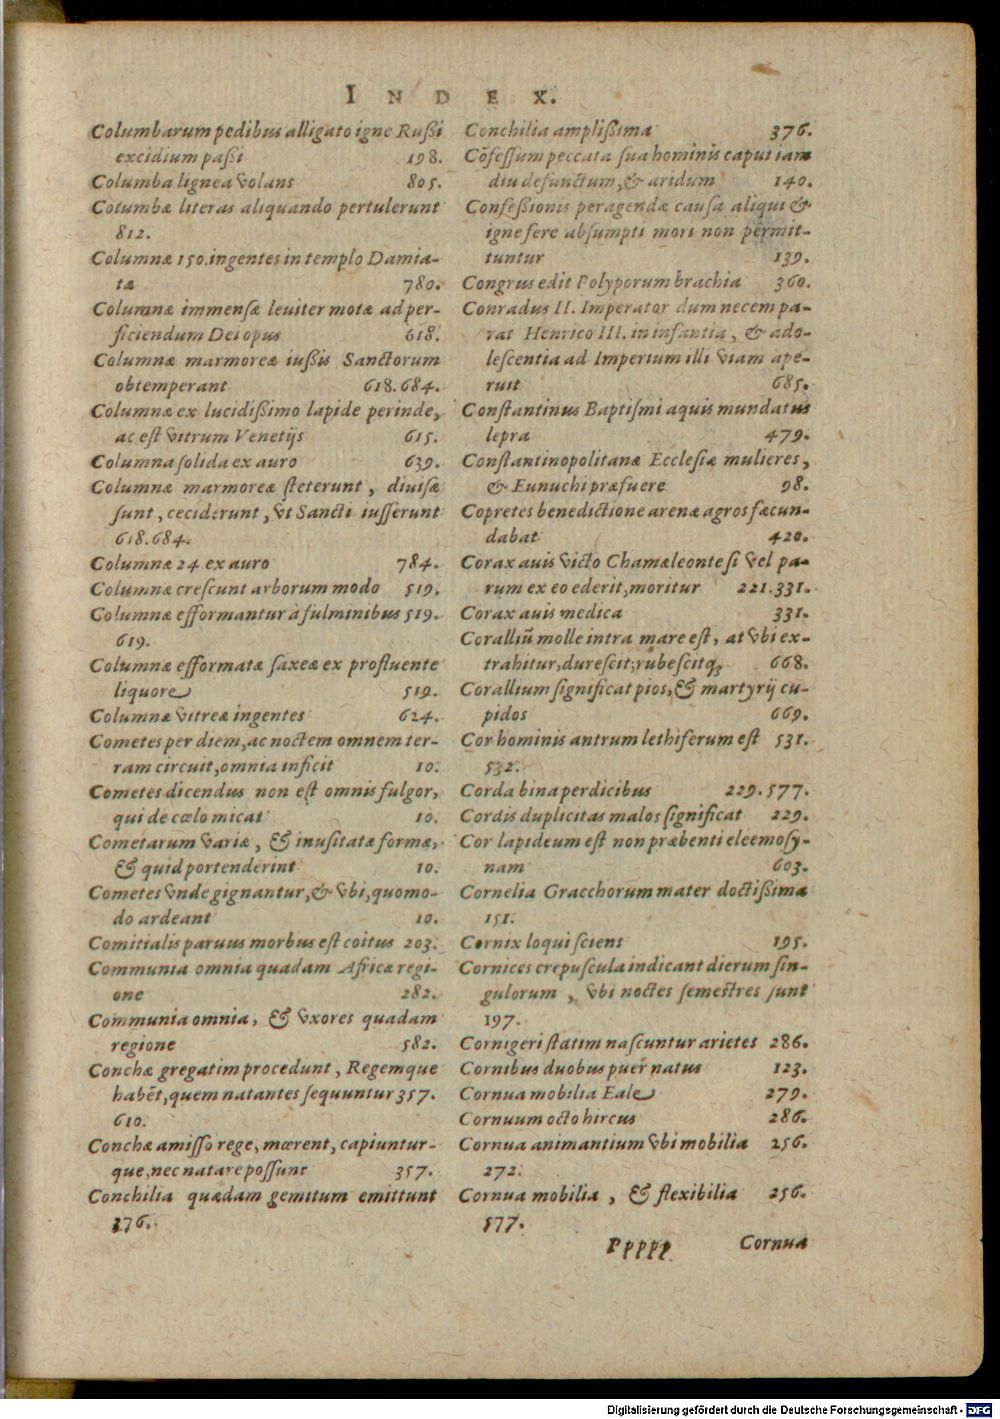 INDEX.
Columbarum pedibus alligato igne Rußi
excidium paßi 198.
Columba lignea volans 805.
Columbæ literas aliquando pertulerunt
812.
Columnæ 150. ingentes in templo Damia-
tæ 780.
Columnæ immensæ leuiter motæ ad per-
ficiendum Dei opus 618.
Columnæ marmoreæ iußis Sanctorum
obtemperant 618.684.
Columnæ ex lucidißimo lapide perinde,
ac est vitrum Venetijs 615.
Columna solida ex auro 639.
Columnæ marmoreæ steterunt, diuisæ
sunt, ceciderunt, vt Sancti iusserunt
618.684.
Columnæ 24 ex auro 784.
Columnæ crescunt arborum modo 519.
Columnæ efformantur à fulminibus 519.
619.
Columnæ efformatæ saxeæ ex profluente
liquore 519.
Columnæ vitreæ ingentes 624.
Cometes per diem, ac noctem omnem ter-
ram circuit, omnia inficit 10.
Cometes dicendus non est omnis fulgor,
qui de cœlo micat 10.
Cometarum variæ, & inusitatæ formæ,
& quid portenderint 10.
Cometes vnde gignantur, & vbi, quomo-
do ardeant 10.
Comitialis paruus morbus est coitus 203.
Communia omnia quadam Africæ regi-
one 282.
Communia omnia, & vxores quadam
regione 582.
Conchæ gregatim procedunt, Regemque
habēt, quem natantes sequuntur 357.
610.
Conchæ amisso rege, mœrent, capiuntur-
que, nec natare possunt 357.
Conchilia quædam gemitum emittunt
376.
Conchilia amplißima 376.
Cōfessum peccata sua hominis caput iam
diu defunctum, & aridum 140.
Confeßionis peragendæ causa aliqui &
igne fere absumpti mori non permit-
tuntur 139.
Congrus edit Polyporum brachia 360.
Conradus II. Imperator dum necem pa-
rat Henrico III. in infantia, & ado-
lescentia ad Imperium illi viam ape-
ruit 685.
Constantinus Baptismi aquis mundatus
lepra 479.
Constantinopolitanæ Ecclesiæ mulieres,
& Eunuchi præfuere 98.
Copretes benedictione arenæ agros fæcun-
dabat 420.
Corax auis victo Chamæleonte si vel pa-
rum ex eo ederit, moritur 221.331.
Corax auis medica 331.
Coralliū molle intra mare est, at vbi ex-
trahitur, durescit, rubescitq; 668.
Corallium significat pios, & martyrij cu-
pidos 669.
Cor hominis antrum lethiferum est 531.
532.
Corda bina perdicibus 229.577.
Cordis duplicitas malos significat 229.
Cor lapideum est non præbenti eleemosy-
nam 603.
Cornelia Gracchorum mater doctißima
151.
Cornix loqui sciens 195.
Cornices crepuscula indicant dierum sin-
gulorum, vbi noctes semestres sunt
197.
Cornigeri statim nascuntur arietes 286.
Cornibus duobus puer natus 123.
Cornua mobilia Eale 279.
Cornuum octo hircus 286.
Cornua animantium vbi mobilia 256.
272.
Cornua mobilia, & flexibilia 256.
577.
Ppppp Cornua
Digitalisierung gefördert durch die Deutsche Forschungsgemeinschaft - DFG